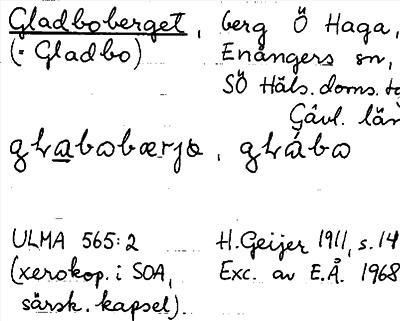 Gladboberget, berg Ö Haga,
(: Gladbo) Enångers sn,
SÖ Häls. doms. tg
Gävl. län
ULMA 565:2 H. Geijer 1911, s. 14
(xerokop. i SOA, Exc. av E.Å. 1968
särsk. kapsel).